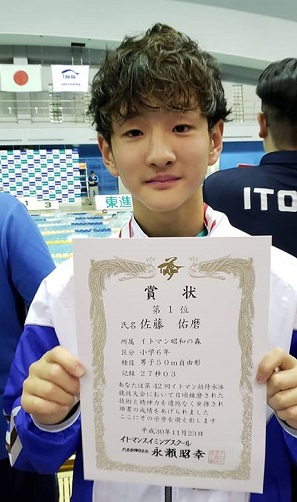 ITO
1 3
東進
賞状
第1位
氏名 佐藤 佑磨
所属 イトマン昭和の森
区分 小学6年
種目 男子50m自由形
記録 27秒03
あなたは第42回イトマン招待水泳
競技大会において日頃錬磨された
技術と精神力を遺憾なく発揮され
頭書の成績をあげられました
ここにその栄誉を讃え彰します
平成30年11月23日
イトマンスイミングスクール
永瀬昭幸